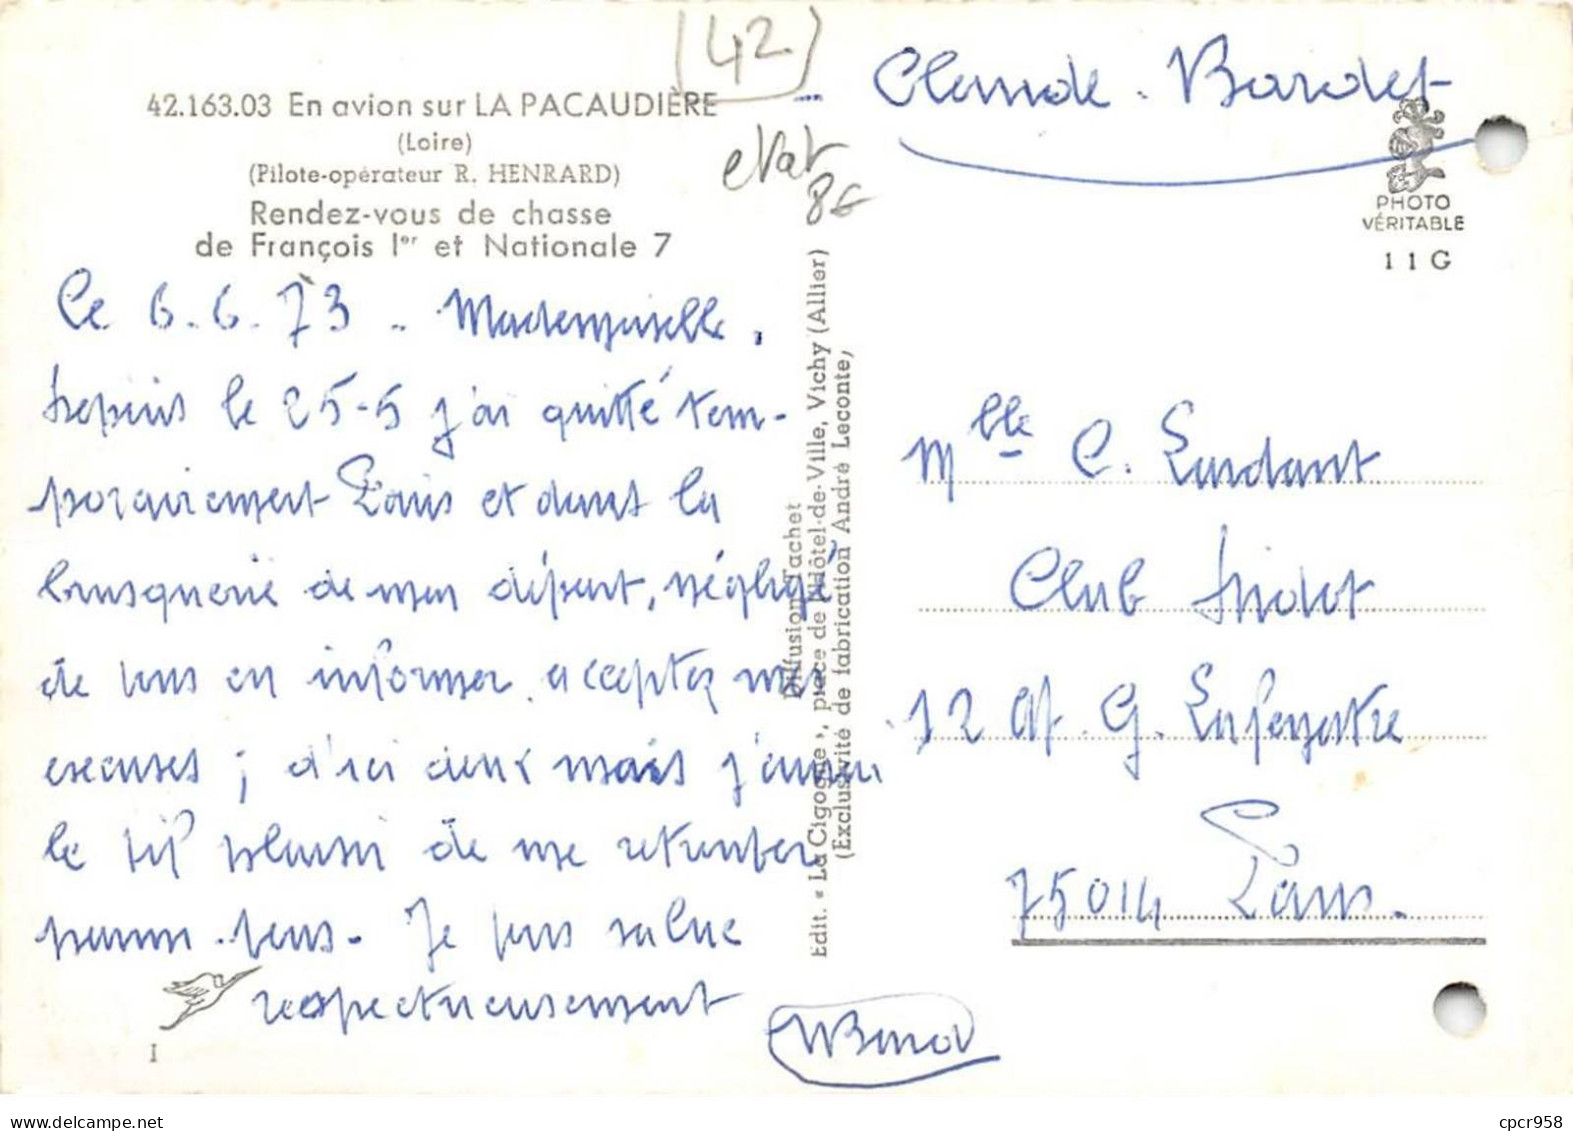 (42)
42.163.03 En avion sur LA PACAUDIÈRE
(Loire)
(Pilote-opérateur R. HENRARD)
Rendez-vous de chasse
de François Ier et Nationale 7
8€
Le 6.6.73 - Mademoiselle,
depuis le 25-5 j'ai quitté tem-
porairement Paris et dans la
brusquerie de mon départ, négligé
de vous en informer. acceptez mes
excuses ; d'ici deux mois j'aurai
le vif plaisir de me retrouver
parmi vous. Je vous salue
respectueusement
I
Diffusion Tachet
Edit. « La Cigogne », place de l'Hôtel-de-Ville, Vichy (Allier)
(Exclusivité de fabrication André Leconte,
Claude Bardet
PHOTO
VÉRITABLE
11G
Mlle C. Lardant
Club
12 G. Lafenestre
75014 Paris.
cpcr958